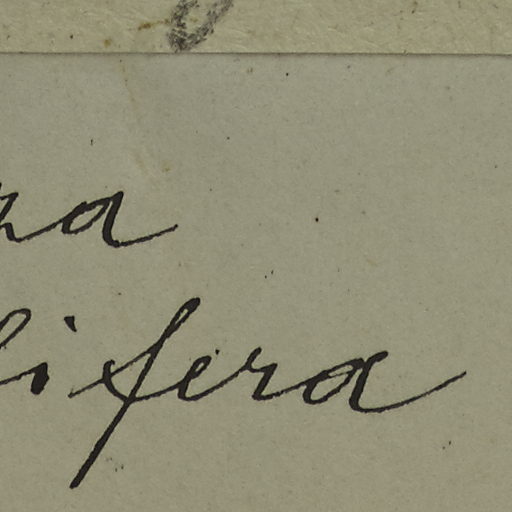 na
lifera